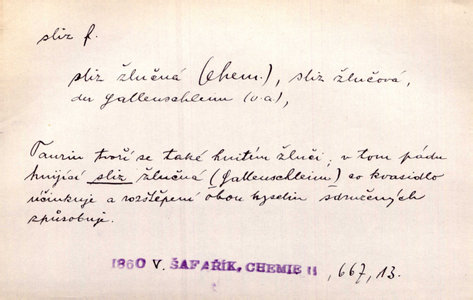 sliz f.
sliz žlučná (chem.), sliz žlučová,
der Gallenschleim (v.a),
Taurin tvoří se také hnitím žluči; v tom pádu
hnijící sliz žlučná (Gallenschleim) co kvasidlo
účinkuje a rozštěpení obou kyselin sdružených
způsobuje.
1860 V. ŠAFAŘÍK, CHEMIE II, 667, 13.